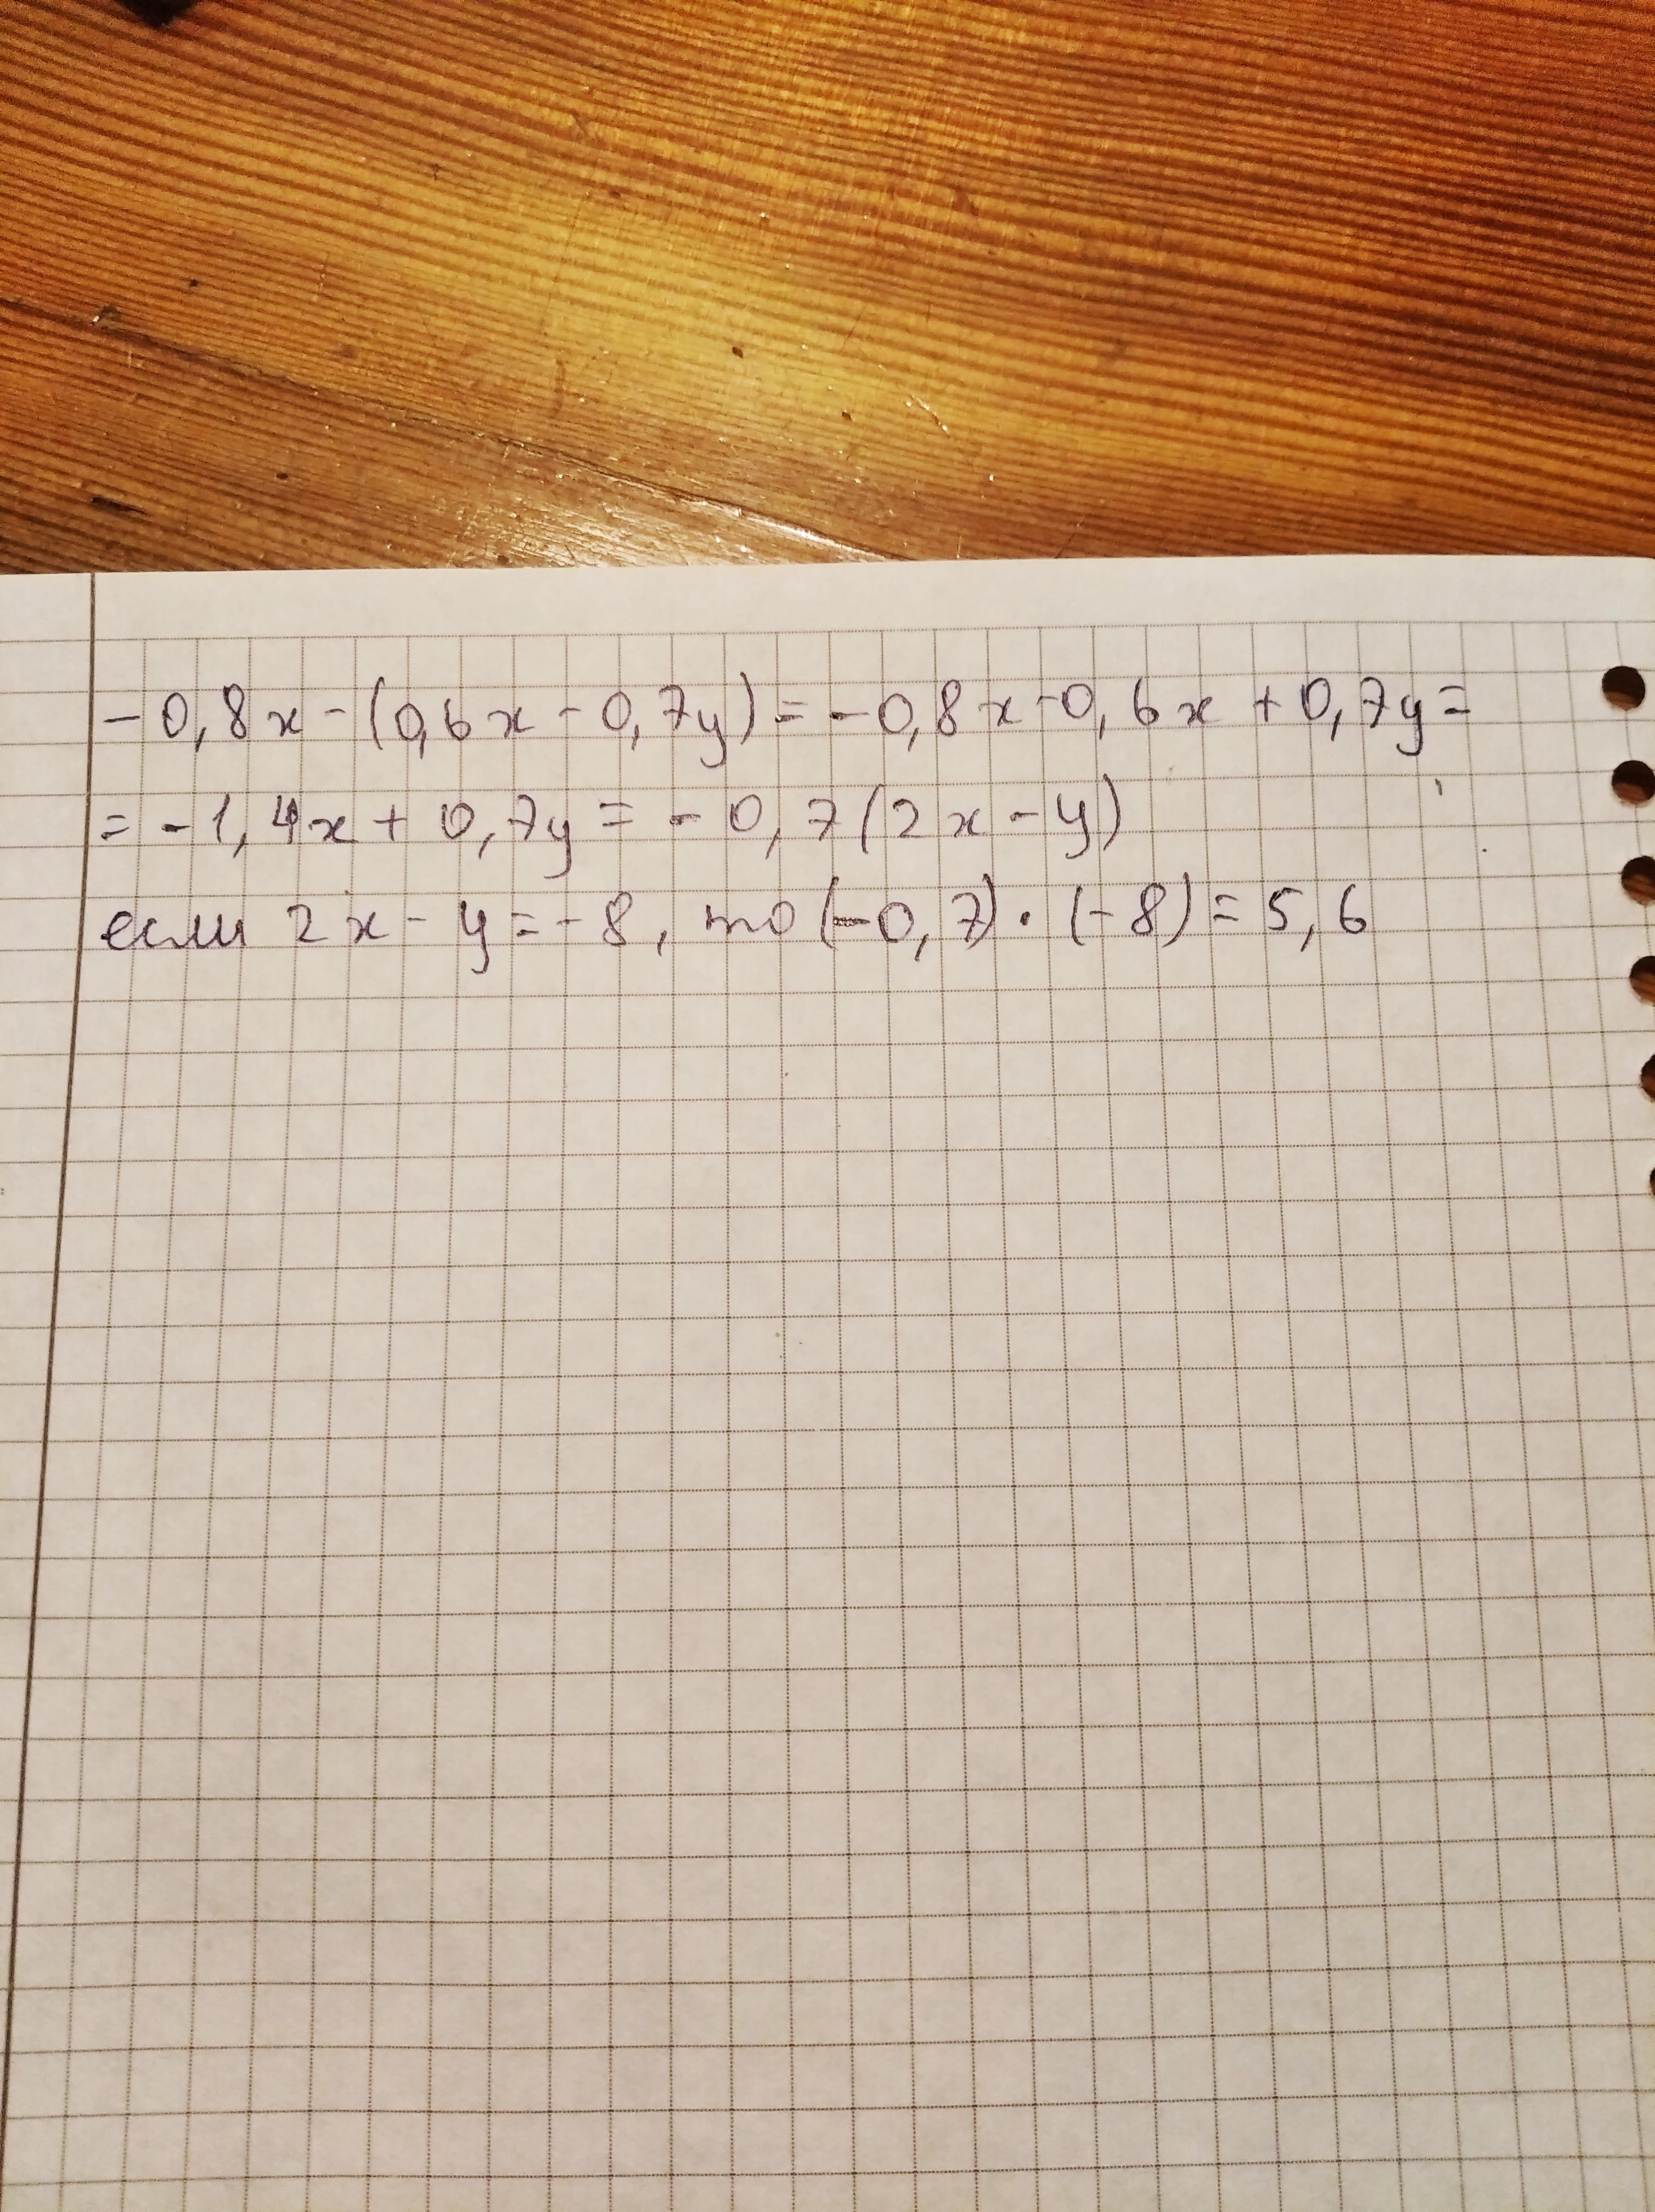 -0,8x-(0,6x-0,7y)=-0,8x-0,6x+0,7y=
=-1,4x+0,7y=-0,7(2x-y)
если 2x-y=-8, то (-0,7)·(-8)=5,6